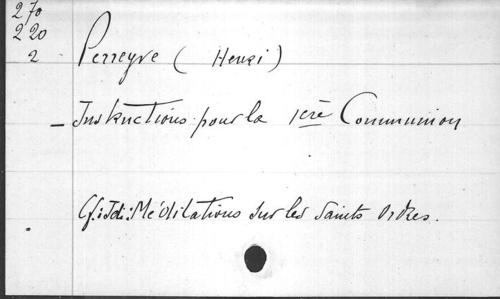 270
220
2
Perreyve ( Henri )
- Instructions pour la 1ère Communion
Cf. id: Méditations sur les saints Ordres.